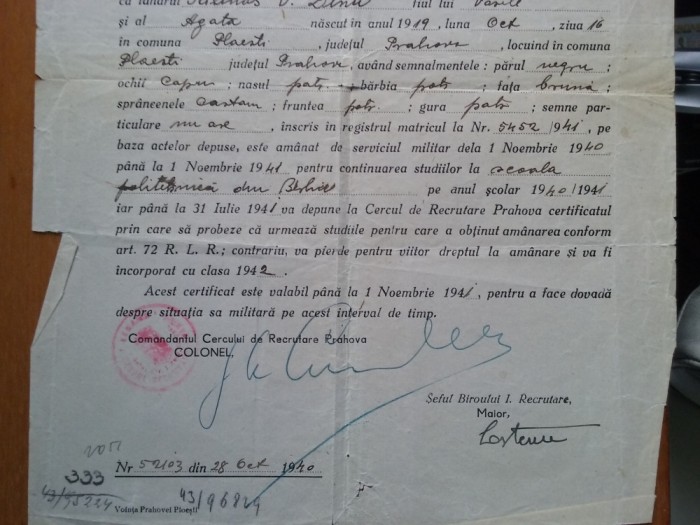 fiul lui Vasile
și al Agata , născut în anul 1919, luna Oct , ziua 16
în comuna Ploești , județul Prahova , locuind în comuna
Ploești județul Prahova , având semnalmentele: părul negru ;
ochii Caprui ; nasul potr. ; bărbia potr ; fața brună ;
sprâncenele castani ; fruntea potr. ; gura potr ; semne par-
ticulare nu are , înscris în registrul matricul la Nr. 5452/941 , pe
baza actelor depuse, este amânat de serviciul militar dela 1 Noembrie 1940
până la 1 Noembrie 1941 pentru continuarea studiilor la școala
politehnică din pe anul școlar 1940/1941
iar până la 31 Iulie 1941 va depune la Cercul de Recrutare Prahova certificatul
prin care să probeze că urmează studiile pentru care a obținut amânarea conform
art. 72 R. L. R.; contrariu, va pierde pentru viitor dreptul la amânare și va fi
incorporat cu clasa 1942 .
Acest certificat este valabil până la 1 Noembrie 1941, pentru a face dovadă
despre situația sa militară pe acest interval de timp.
Comandantul Cercului de Recrutare Prahova
COLONEL,
Șeful Biroului I. Recrutare,
Maior,
333
Nr 52103 din 28 Oct 1940
43/95224
43/96849
Voința Prahovei Ploești